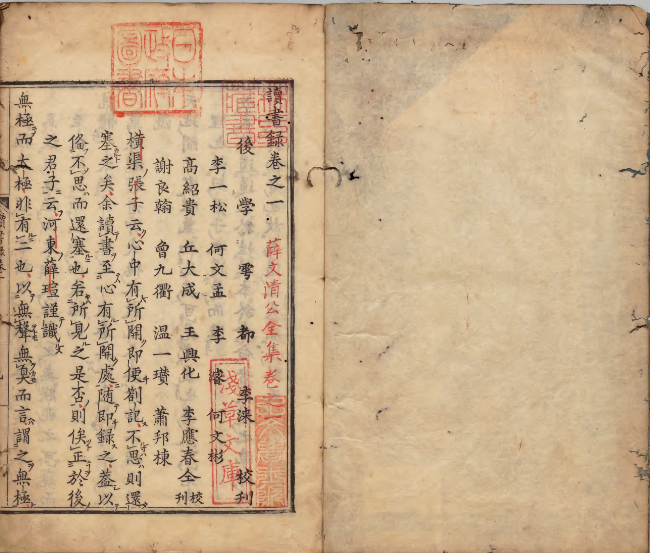 日本政府圖書
讀書録卷之一
薛文清公全集卷之
後學雩都李淶校刊
李一松 何文孟 李濬 何文彬
高紹貴 丘大成 王興化 李應春仝校刊
謝良翰 曾九衢 温一瓚 蕭邦棟
淺草文庫
橫渠張子云心中有所開即便劄記不思則還
塞之矣余讀書至心有所開處隨即録之蓋以
俻不思而還塞也若所見之是否則俟正於後
之君子云河東薛瑄謹識
無極而太極非有二也以無聲無臭而言謂之無極